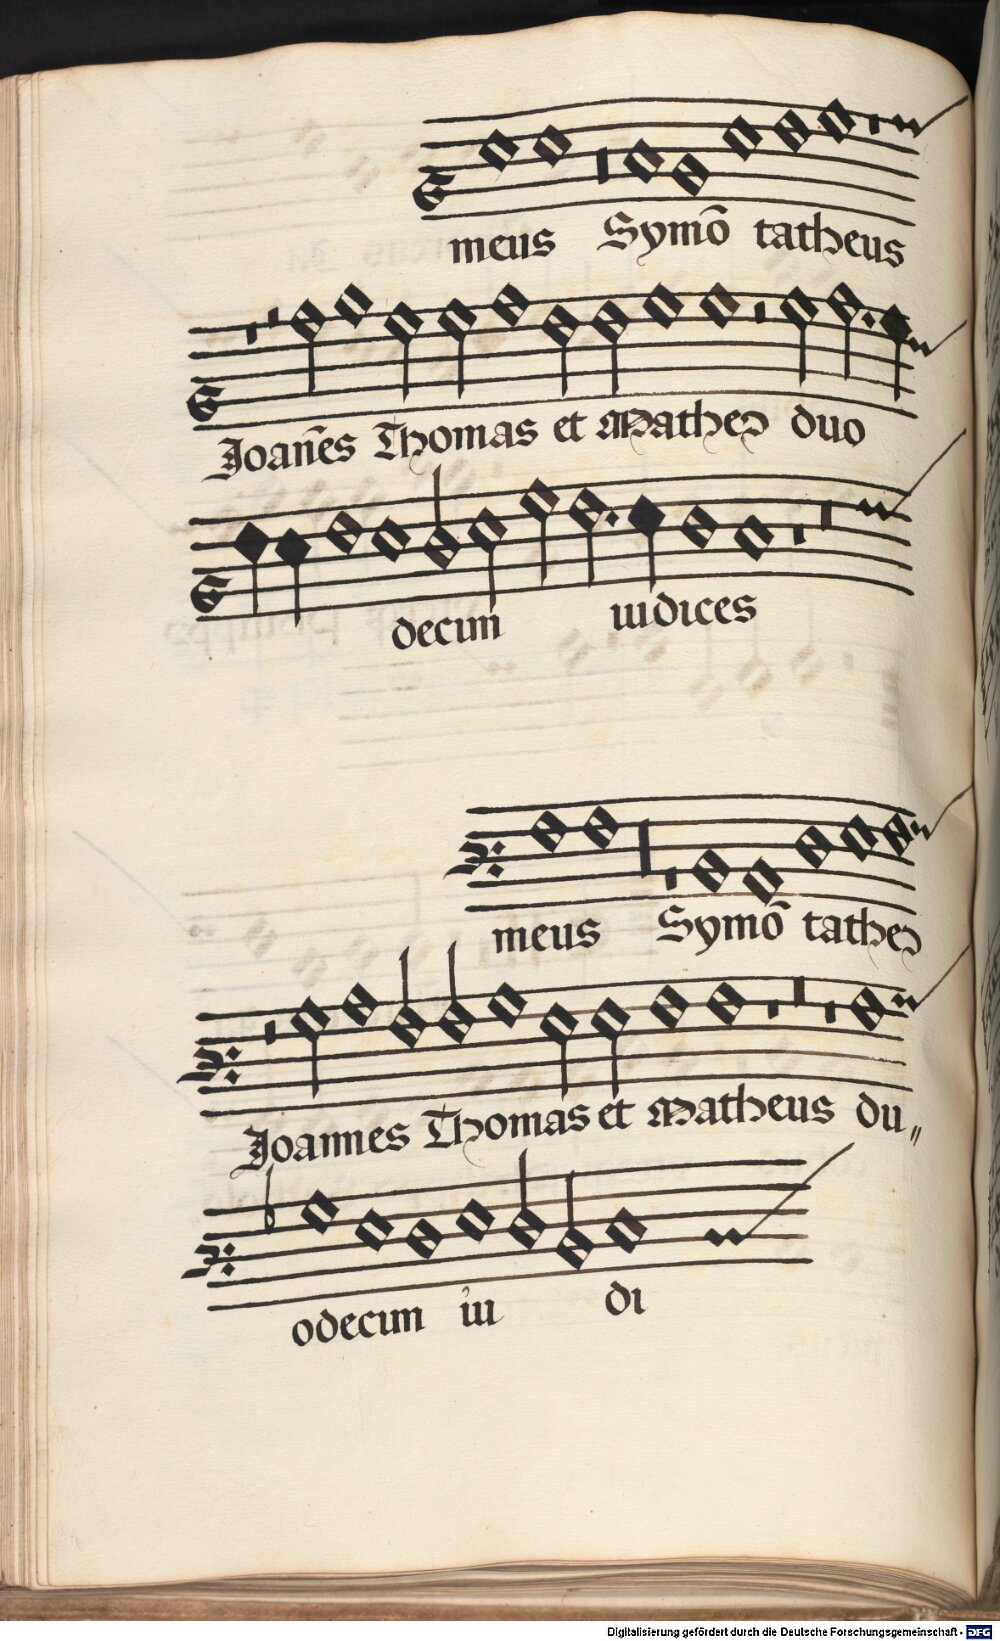 meus Symō tatheus
Joan̄es Thomas et Matheꝰ duo
decim iudices
meus Symō tatheꝰ
Joannes Thomas et Matheus du〃
odecim iu di
Digitalisierung gefördert durch die Deutsche Forschungsgemeinschaft - DFG